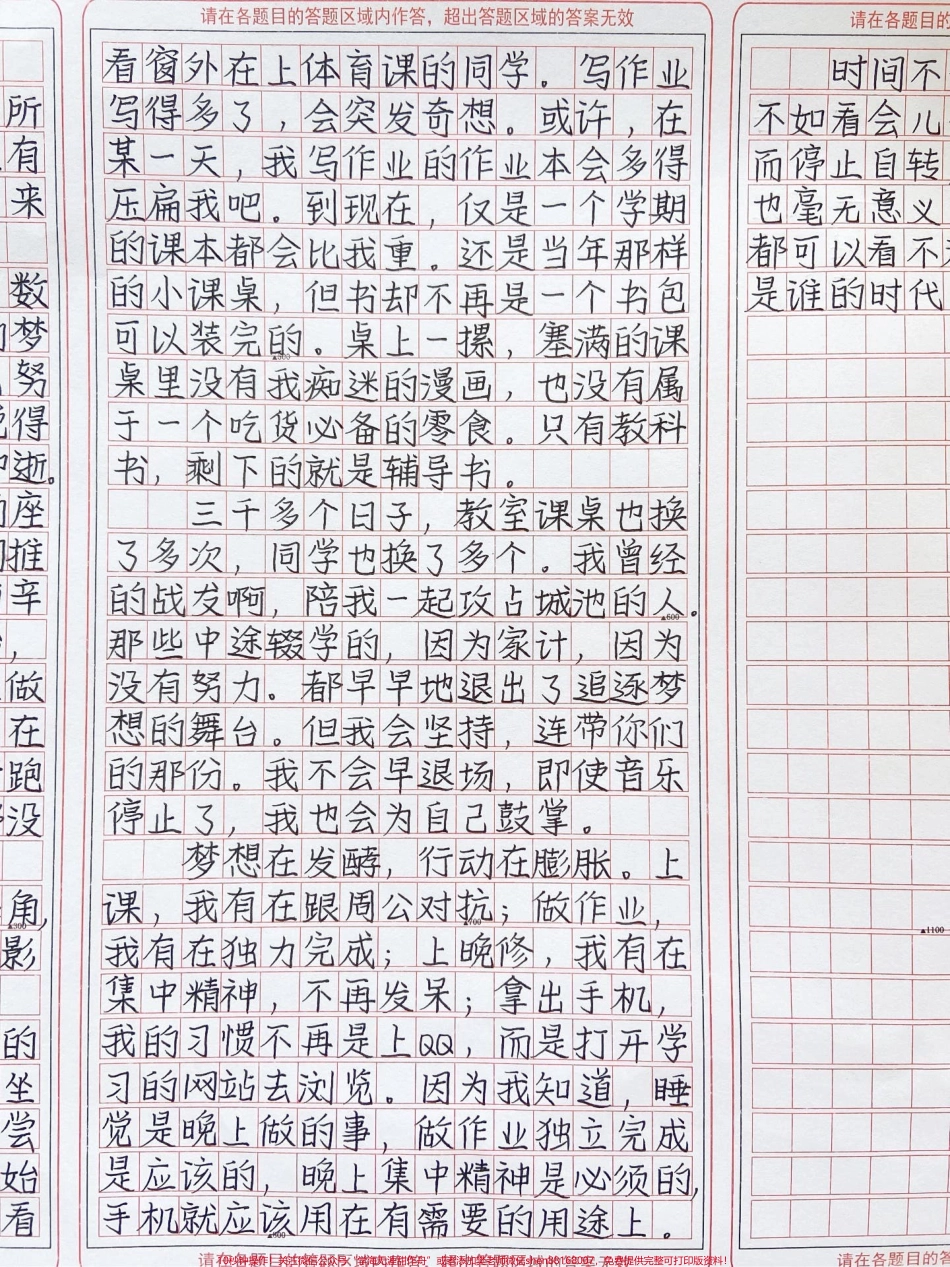 请在各题目的答题区域内作答，超出答题区域的答案无效
看窗外在上体育课的同学。写作业
写得多了，会突发奇想。或许，在
某一天，我写作业的作业本会多得
压扁我吧。到现在，仅是一个学期
的课本都会比我重。还是当年那样
的小课桌，但书却不再是一个书包
可以装完的。桌上一摞，塞满的课
▲500
桌里没有我痴迷的漫画，也没有属
于一个吃货必备的零食。只有教科
书，剩下的就是辅导书。
三千多个日子，教室课桌也换
了多次，同学也换了多个。我曾经
的战友啊，陪我一起攻占城池的人。
▲600
那些中途辍学的，因为家计，因为
没有努力。都早早地退出了追逐梦
想的舞台。但我会坚持，连带你们
的那份。我不会早退场，即使音乐
停止了，我也会为自己鼓掌。
梦想在发酵，行动在膨胀。上
课，我有在跟周公对抗；做作业，
▲700
我有在独力完成；上晚修，我有在
集中精神，不再发呆；拿出手机，
我的习惯不再是上QQ，而是打开学
习的网站去浏览。因为我知道，睡
觉是晚上做的事，做作业独立完成
是应该的，晚上集中精神是必须的，
手机就应该用在有需要的用途上。
▲800
所
有
来
数
梦
努
得
逝。
座
推
辛
，
做
在
跑
没
角，
▲300
影
的
坐
尝
始
看
请在各题目的
时间不
不如看会儿
而停止自转
也毫无意义
都可以看不
是谁的时代
▲1100